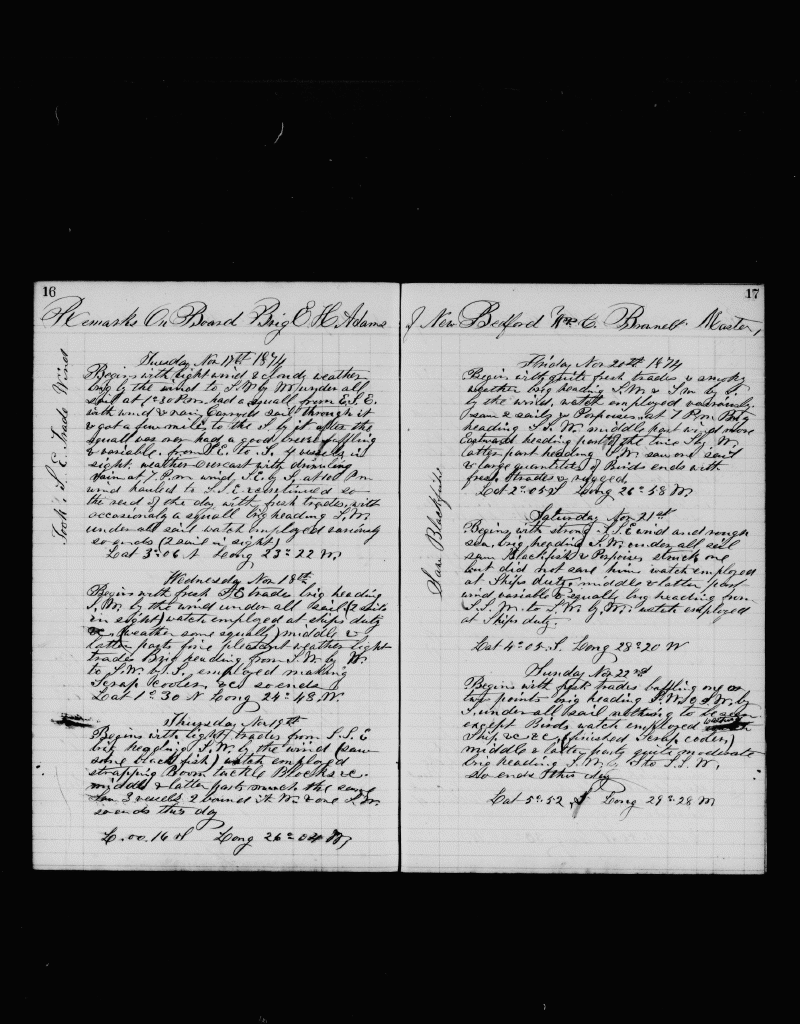 16
Remarks On Board Brig E H Adams
Took S. E. Trade Wind
Tuesday Nov 17th 1874
Begins with light wind & cloudy weather
brig by the wind to S. W by W under all
sail at 1=30 P.m. had a squall from E.S.E.
with wind & rain, carried sail through it
& got a few miles to the S. by it after the
squall was over had a good breeze baffling
& variable. from S.E. to S. 4 vessels in
sight. weather overcast with drizzling
rain at 7 P.m wind, S.E. by S, at 10 P.m
wind hauled to S.S.E & continued so
the rest of the day with fresh trades, with
occasionaly a squall brig heading S.W.
under all sail watch employed variously
so ends (2 sail in sight)
Lat 3=06 N Long 23=22 W.
Wednesday Nov 18th
Begins with fresh SE trades brig heading
S.W. by the wind under all sail (2 sails
in sight) watch employed at ships duty
&c. (weather some squally) middle &
latter parts fine pleasant weather light
trades Brig heading from S. W. by W.
to S. W. by S, employed making
Scrap cooler, &c, so ends
Lat 1=30 N Long 24=48 W.
Thursday Nov 19th
Begins with light trades from S.S.E
brig heading S. W. by the wind (saw
some black fish) watch employed
strapping Boom tackle Blocks &c.
middle & latter parts much the same
saw 3 vessels 2 bound N. W. & one S.W.
so ends this day
L. 00. 16 N Long 26=04 W
17
of New Bedford Wm C. Brownell Master,
Saw Blackfish
Friday Nov 20th 1874
Begins with quite fresh trades & smoky
weather brig heading S.W. & S.W. by S.
by the wind, watch employed variously.
saw 2 sails & Porpoises at 7 P.m Brig
heading S.S.W. middle part wind more
Eastward heading part of the time S by W.
latter part heading S.W. saw one sail
& large quantities of Birds ends with
fresh trades & rugged
Lat 2=05 S Long 26=58 W.
Saturday Nov 21st
Begins with strong S.E wind and rough
sea, brig heading S.W. under all sail
saw Blackfish & Porpoises struck one
but did not save him watch employed
at Ships duty. middle & latter part
wind variable & squally brig heading from
S.S.W. to S.W. by W. watch employed
at Ships duty.
Lat 4=05 S. Long 28=20 W
Sunday Nov 22nd
Begins with fresh trades baffling one or
two points brig heading S.W. & S.W. by
S. under all sail nothing to be seen
except Birds watch employed
Ship &c &c. (finished Scrap cooler)
middle & latter parts quite moderate
brig heading S.W. by S to S.S.W.
so ends this day
Lat 5=52 S Long 29=28 W